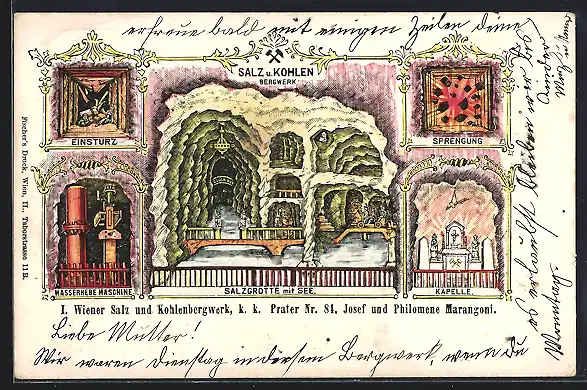 erfreue bald mit einigen Zeilen deine
SALZ u. KOHLEN
BERGWERK
EINSTURZ
SPRENGUNG
WASSERHEBE MASCHINE
SALZGROTTE mit SEE.
KAPELLE.
Fischer's Druck, Wien, II., Taborstrasse 11 B.
I. Wiener Salz und Kohlenbergwerk, k. k. Prater Nr. 84, Josef und Philomene Marangoni.
Liebe Mutter!
Wir waren Dienstag in diesem Bergwerk, wenn du
es erlaubst bleiben wir bis
Montag.